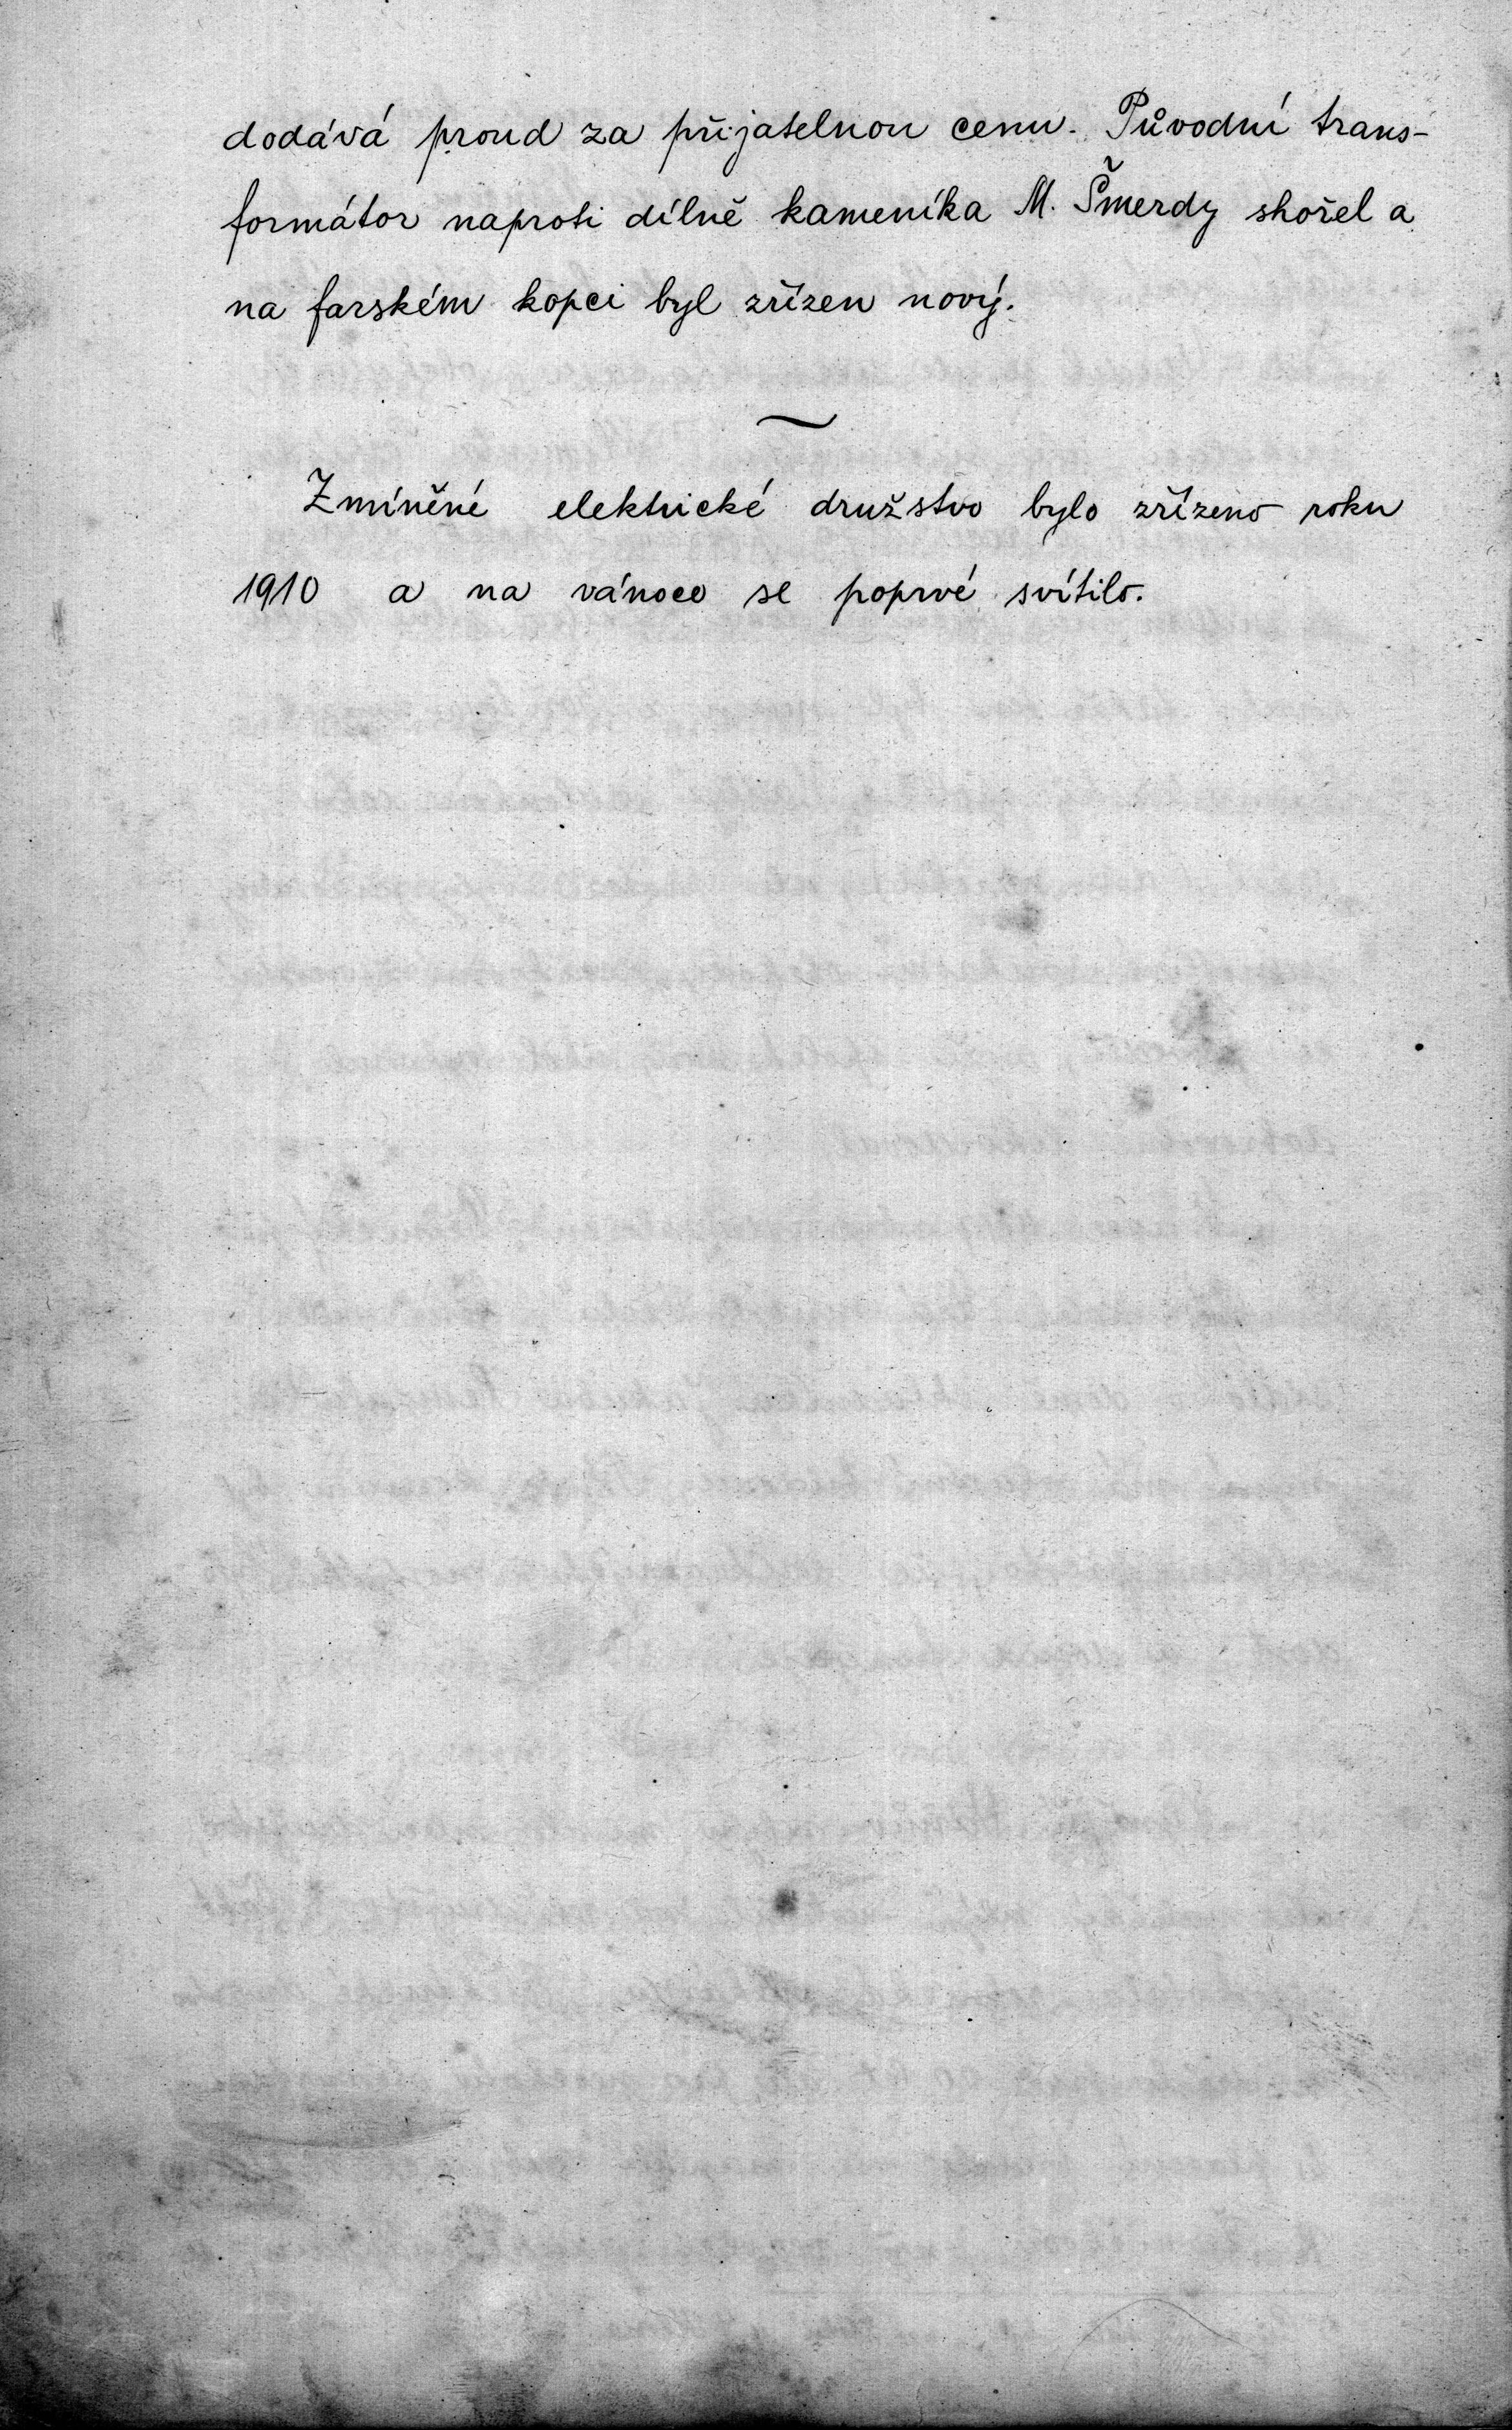 dodává proud za přijatelnou cenu. Původní trans-
formátor naproti dílně kameníka M. Šmerdy shořel a
na farském kopci byl zřízen nový.
Zmíněné elektrické družstvo bylo zřízeno roku
1910 a na vánoce se poprvé svítilo.